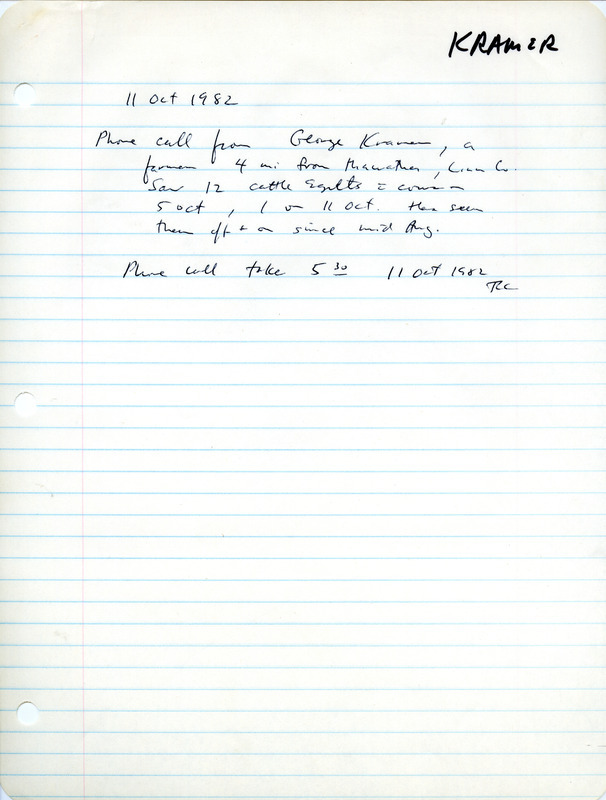 KRAMER
11 Oct 1982
Phone call from George Kramer, a
farmer 4 mi from Hiawatha, Linn Co.
Saw 12 cattle Egrets c cows on
5 Oct, 1 on 11 Oct. Has seen
them off + on since mid Aug.
Phone call take 5 30 11 Oct 1982